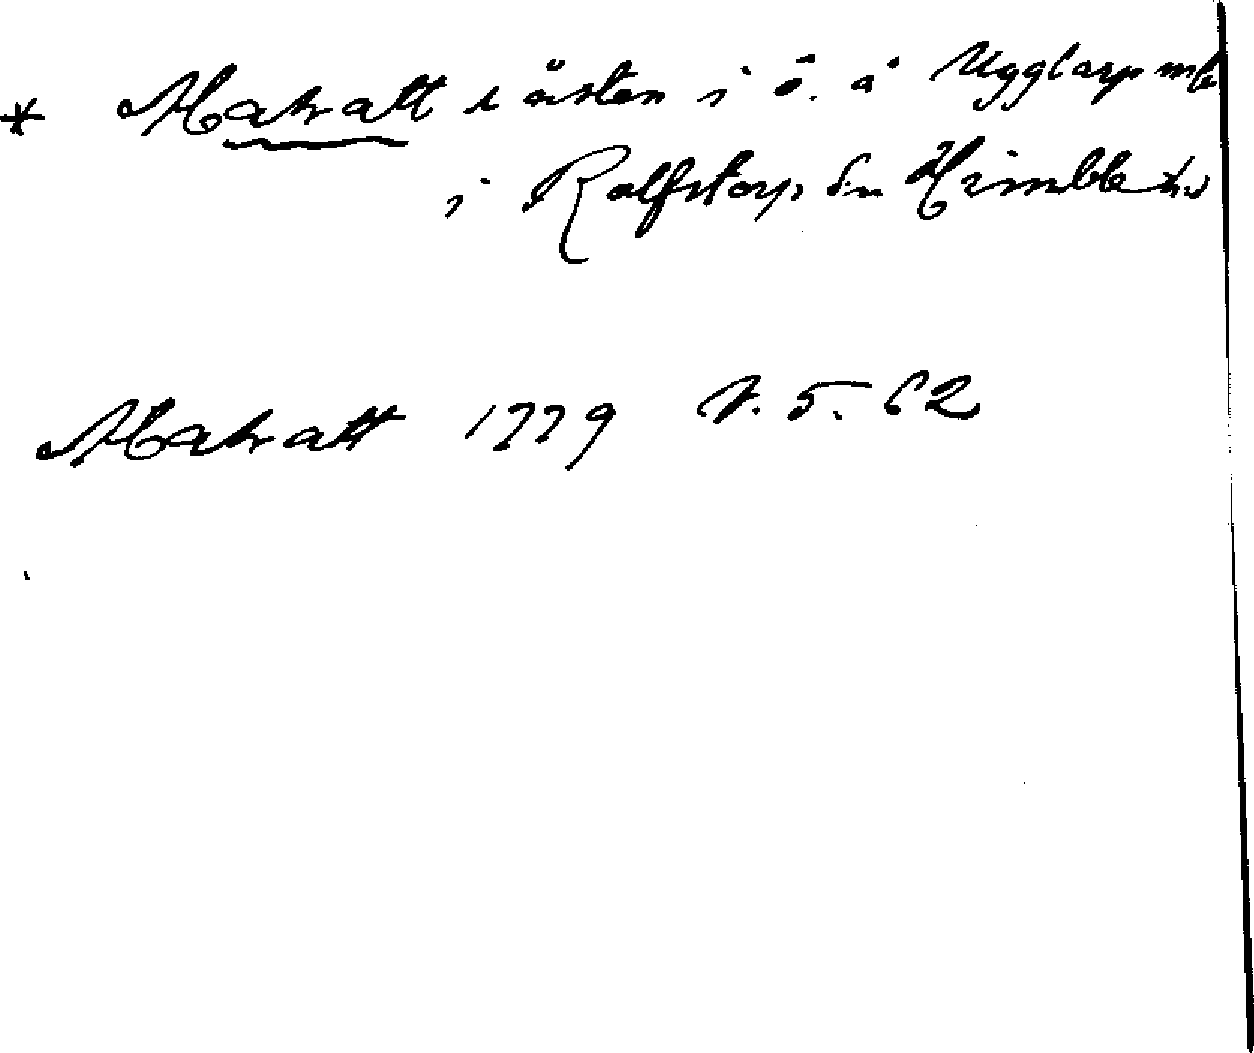 * Matratt i östen i ö. å Ugglarp
i Rolfstorp sn Himble hd
Matratt 1779 V. 5. 62